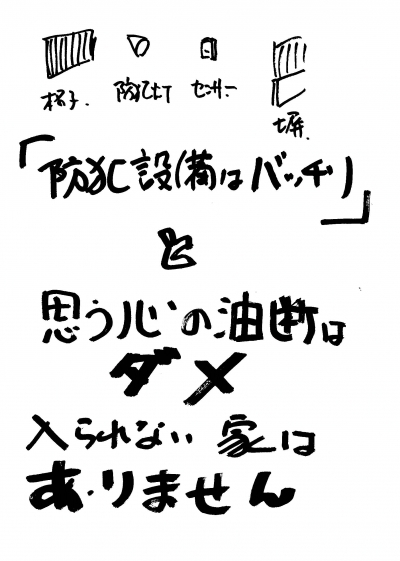 格子 防犯灯 センサー 塀
「防犯設備はバッチリ」
と
思う心の油断は
ダメ
入られない家は
ありません